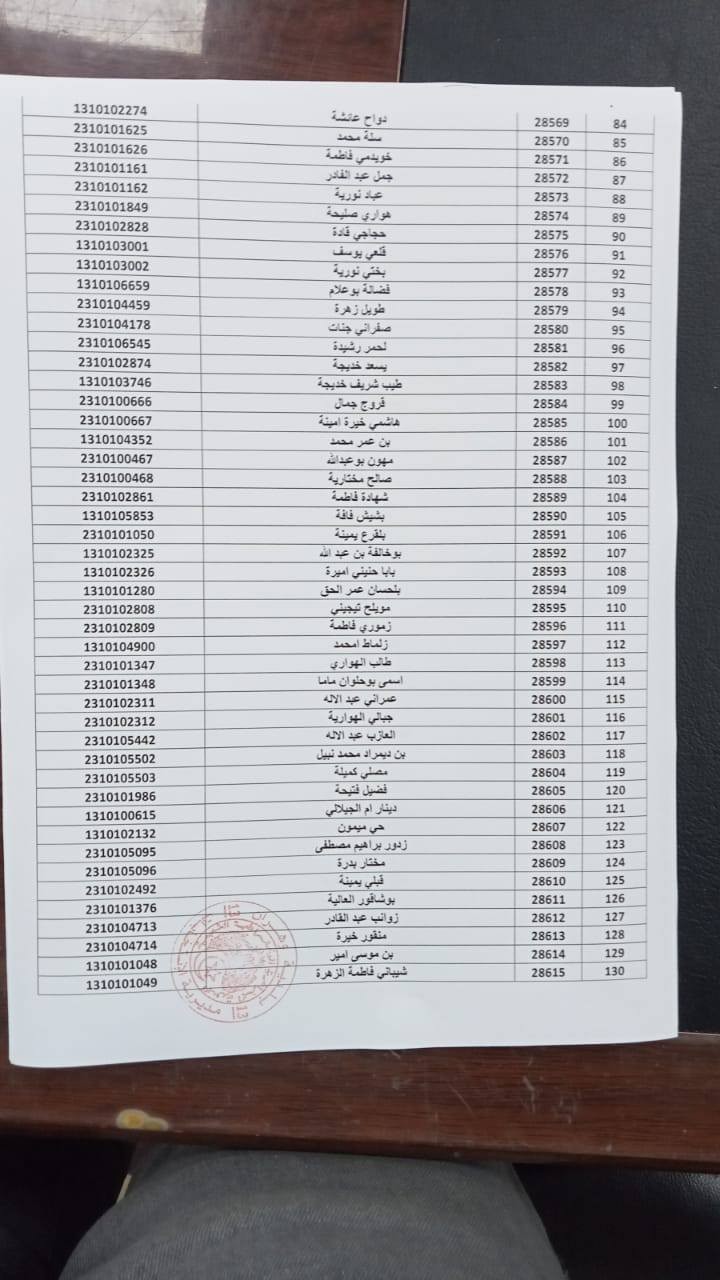 84 28569 دواح عائشة 1310102274
85 28570 سلة محمد 2310101625
86 28571 خويدمي فاطمة 2310101626
87 28572 جمل عبد القادر 2310101161
88 28573 عباد نورية 2310101162
89 28574 هواري صليحة 2310101849
90 28575 حجاجي قادة 2310102828
91 28576 قلعي يوسف 1310103001
92 28577 بختي نورية 1310103002
93 28578 فضالة بوعلام 1310106659
94 28579 طويل زهرة 2310104459
95 28580 صفراني جنات 2310104178
96 28581 لحمر رشيدة 2310106545
97 28582 يسعد خديجة 2310102874
98 28583 طيب شريف خديجة 1310103746
99 28584 قروج جمال 2310100666
100 28585 هاشمي خيرة امينة 2310100667
101 28586 بن عمر محمد 1310104352
102 28587 مهون بوعبدالله 2310100467
103 28588 صالح مختارية 2310100468
104 28589 شهادة فاطمة 2310102861
105 28590 بشيش فافة 1310105853
106 28591 بلقرع يمينة 2310101050
107 28592 بوخالفة بن عبد الله 1310102325
108 28593 بابا حنيني اميرة 1310102326
109 28594 بلحسان عمر الحق 1310101280
110 28595 مويلح تيجيني 2310102808
111 28596 زموري فاطمة 2310102809
112 28597 زلماط امحمد 1310104900
113 28598 طالب الهواري 2310101347
114 28599 اسمى بوحلوان ماما 2310101348
115 28600 عمراني عبد الاله 2310102311
116 28601 جبالي الهوارية 2310102312
117 28602 العازب عبد الاله 2310105442
118 28603 بن ديمراد محمد نبيل 2310105502
119 28604 مصلي كميلة 2310105503
120 28605 فضيل فتيحة 2310101986
121 28606 دينار ام الجيلالي 1310100615
122 28607 حي ميمون 1310102132
123 28608 زدور براهيم مصطفى 2310105095
124 28609 مختار بدرة 2310105096
125 28610 قبلي يمينة 2310102492
126 28611 بوشاقور العالية 2310101376
127 28612 زوانب عبد القادر 2310104713
128 28613 منقور خيرة 2310104714
129 28614 بن موسى امير 1310101048
130 28615 شيباني فاطمة الزهرة 1310101049